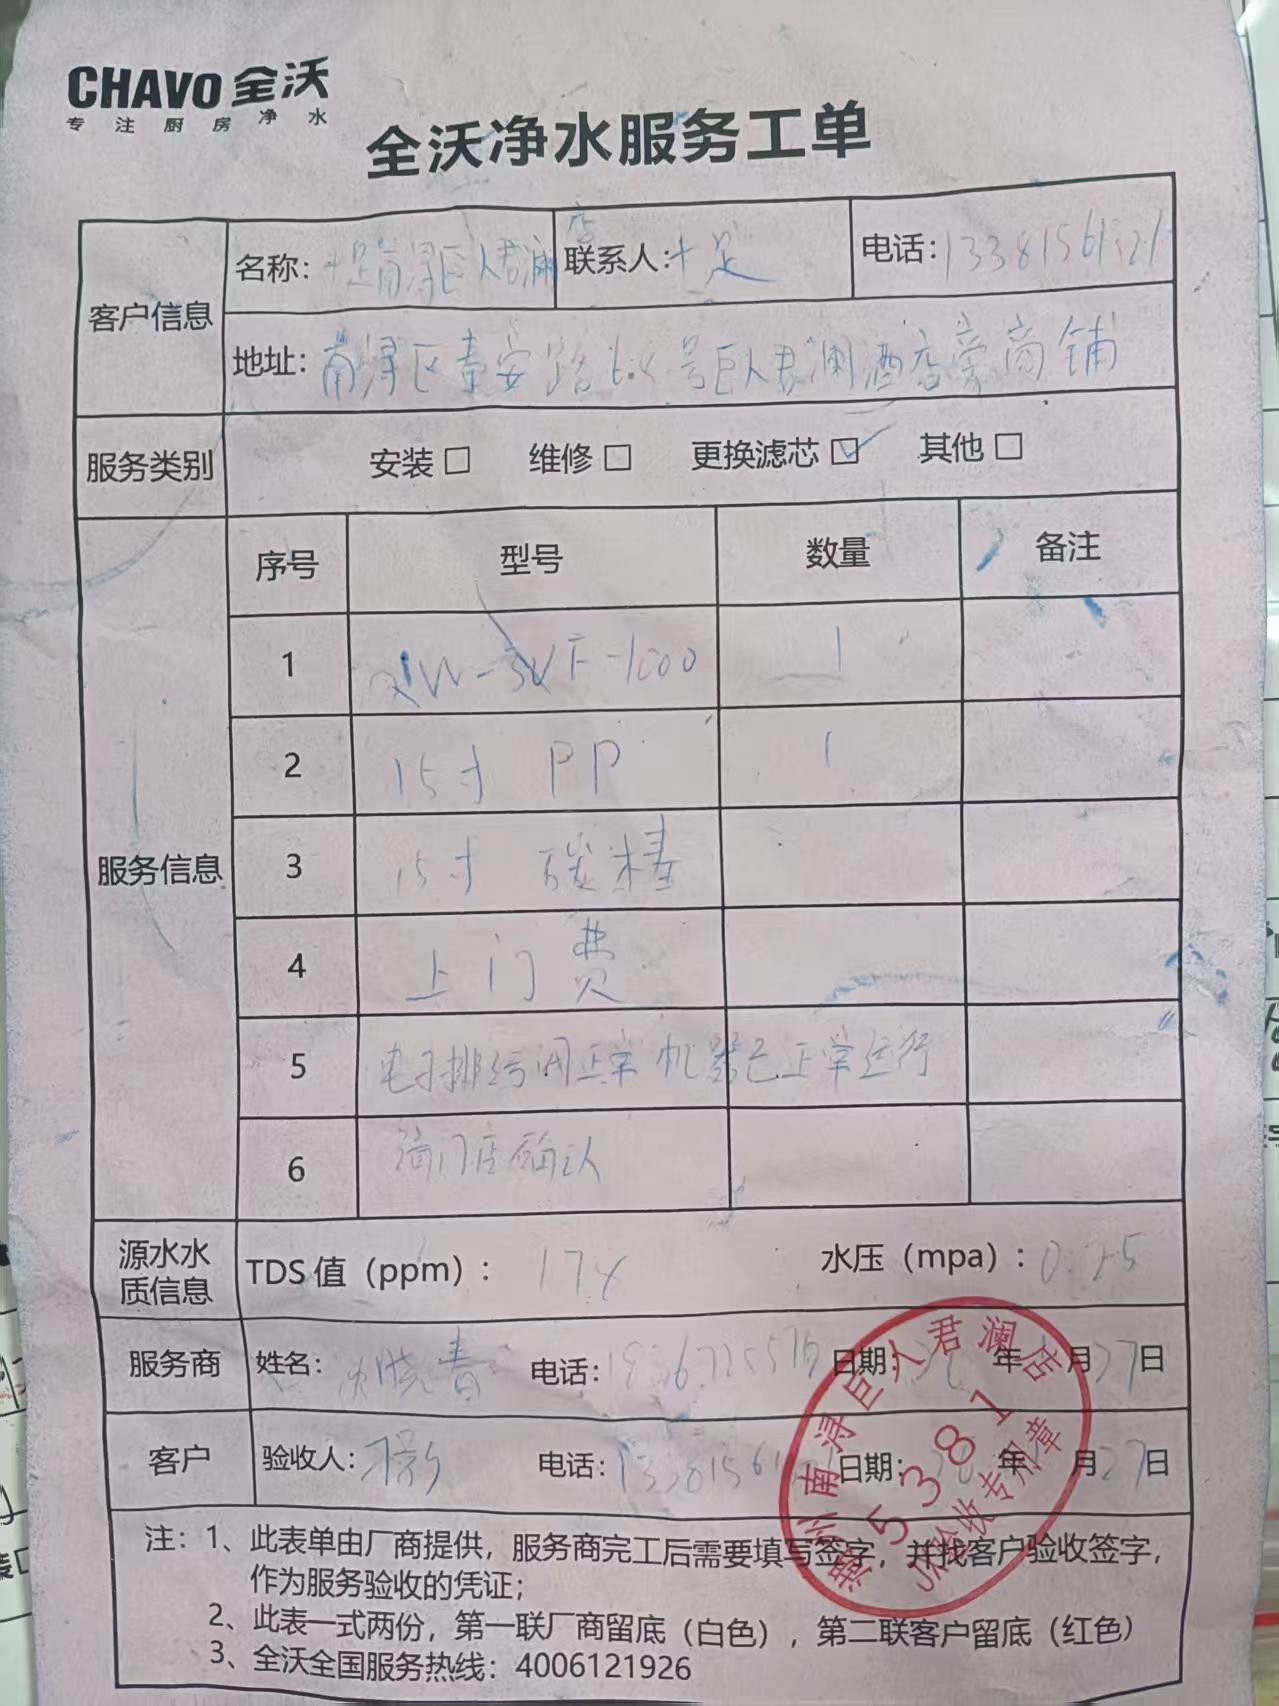 CHAVO 全沃
专注厨房净水
全沃净水服务工单
客户信息
名称：十足南浔巨人君澜店
联系人：十足
电话：
地址：南浔区泰安路 号巨人君澜酒店旁商铺
服务类别
安装□ 维修□ 更换滤芯☑ 其他□
服务信息
序号 型号 数量 备注
1 1
2 15寸 PP 1
3 15寸 碳棒
4 上门费
5 电子排污阀正常 机器已正常运行
6 门店确认
源水水质信息
TDS 值（ppm）：174 水压（mpa）：0.25
服务商 姓名：沈晓春 电话： 日期： 年 月27日
客户 验收人： 电话： 日期： 年 月27日
湖州南浔巨人君澜店
5381
验收专用章
注：1、此表单由厂商提供，服务商完工后需要填写签字，并找客户验收签字，
作为服务验收的凭证；
2、此表一式两份，第一联厂商留底（白色），第二联客户留底（红色）
3、全沃全国服务热线：4006121926